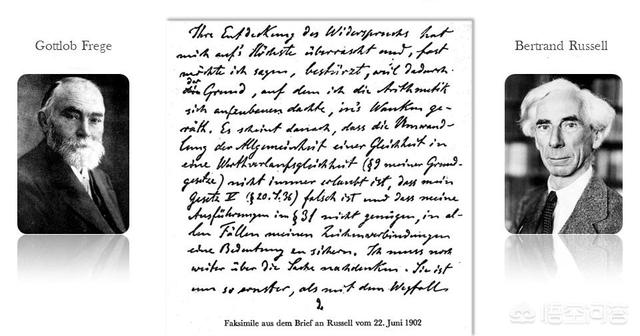 Gottlob Frege
Bertrand Russell
Ihre Entdeckung des Widerspruchs hat
mich auf's Höchste überrascht und, fast
möchte ich sagen, bestürzt, weil dadurch
der Grund, auf dem ich die Arithmetik
sich aufzubauen dachte, in's Wanken ge-
räth. Es scheint danach, dass die Umwand-
lung der Allgemeinheit einer Gleichheit in
eine Werthverlaufsgleichheit (§9 meiner Grund-
gesetze) nicht immer erlaubt ist, dass mein
Gesetz V (§20. S. 36) falsch ist und dass meine
Ausführungen im §31 nicht genügen, in al-
len Fällen meinen Zeichenverbindungen
eine Bedeutung zu sichern. Ich muss noch
weiter über die Sache nachdenken. Sie ist
um so ernster, als mit dem Wegfall
Faksimile aus dem Brief an Russell vom 22. Juni 1902
悟空问答